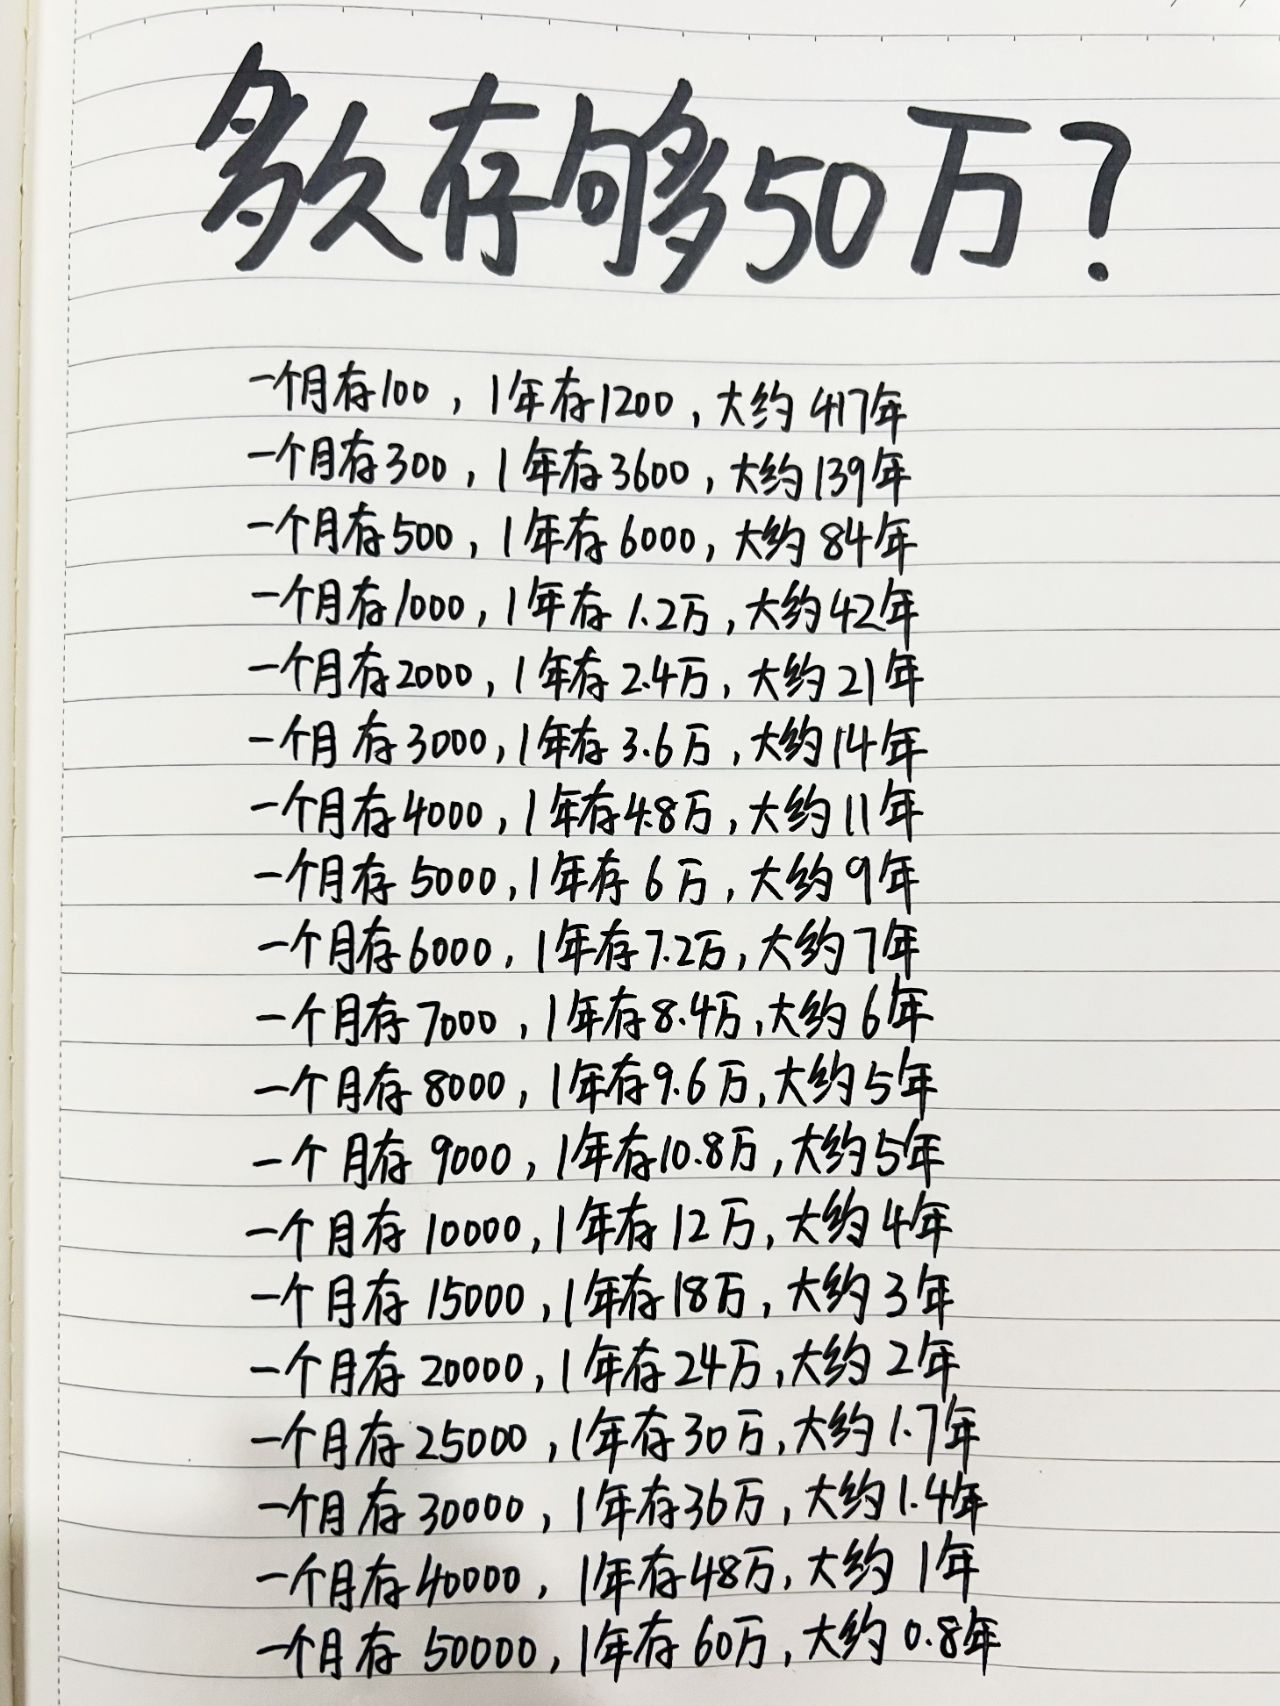 多久存够50万?
一个月存100，1年存1200，大约417年
一个月存300，1年存3600，大约139年
一个月存500，1年存6000，大约84年
一个月存1000，1年存1.2万，大约42年
一个月存2000，1年存2.4万，大约21年
一个月存3000，1年存3.6万，大约14年
一个月存4000，1年存4.8万，大约11年
一个月存5000，1年存6万，大约9年
一个月存6000，1年存7.2万，大约7年
一个月存7000，1年存8.4万，大约6年
一个月存8000，1年存9.6万，大约5年
一个月存9000，1年存10.8万，大约5年
一个月存10000，1年存12万，大约4年
一个月存15000，1年存18万，大约3年
一个月存20000，1年存24万，大约2年
一个月存25000，1年存30万，大约1.7年
一个月存30000，1年存36万，大约1.4年
一个月存40000，1年存48万，大约1年
一个月存50000，1年存60万，大约0.8年